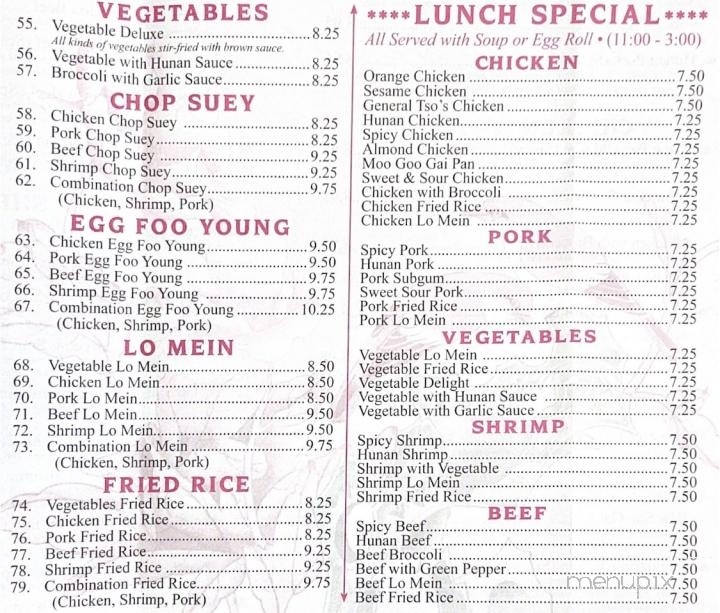 VEGETABLES
55. Vegetable Deluxe ........ 8.25
All kinds of vegetables stir-fried with brown sauce.
56. Vegetable with Hunan Sauce ........ 8.25
57. Broccoli with Garlic Sauce ........ 8.25
CHOP SUEY
58. Chicken Chop Suey ........ 8.25
59. Pork Chop Suey ........ 8.25
60. Beef Chop Suey ........ 9.25
61. Shrimp Chop Suey ........ 9.25
62. Combination Chop Suey ........ 9.75
(Chicken, Shrimp, Pork)
EGG FOO YOUNG
63. Chicken Egg Foo Young ........ 9.50
64. Pork Egg Foo Young ........ 9.50
65. Beef Egg Foo Young ........ 9.75
66. Shrimp Egg Foo Young ........ 9.75
67. Combination Egg Foo Young ........ 10.25
(Chicken, Shrimp, Pork)
LO MEIN
68. Vegetable Lo Mein ........ 8.50
69. Chicken Lo Mein ........ 8.50
70. Pork Lo Mein ........ 8.50
71. Beef Lo Mein ........ 9.50
72. Shrimp Lo Mein ........ 9.50
73. Combination Lo Mein ........ 9.75
(Chicken, Shrimp, Pork)
FRIED RICE
74. Vegetables Fried Rice ........ 8.25
75. Chicken Fried Rice ........ 8.25
76. Pork Fried Rice ........ 8.25
77. Beef Fried Rice ........ 9.25
78. Shrimp Fried Rice ........ 9.25
79. Combination Fried Rice ........ 9.75
(Chicken, Shrimp, Pork)
****LUNCH SPECIAL****
All Served with Soup or Egg Roll • (11:00 - 3:00)
CHICKEN
Orange Chicken ........ 7.50
Sesame Chicken ........ 7.50
General Tso's Chicken ........ 7.50
Hunan Chicken ........ 7.25
Spicy Chicken ........ 7.25
Almond Chicken ........ 7.25
Moo Goo Gai Pan ........ 7.25
Sweet & Sour Chicken ........ 7.25
Chicken with Broccoli ........ 7.25
Chicken Fried Rice ........ 7.25
Chicken Lo Mein ........ 7.25
PORK
Spicy Pork ........ 7.25
Hunan Pork ........ 7.25
Pork Subgum ........ 7.25
Sweet Sour Pork ........ 7.25
Pork Fried Rice ........ 7.25
Pork Lo Mein ........ 7.25
VEGETABLES
Vegetable Lo Mein ........ 7.25
Vegetable Fried Rice ........ 7.25
Vegetable Delight ........ 7.25
Vegetable with Hunan Sauce ........ 7.25
Vegetable with Garlic Sauce ........ 7.25
SHRIMP
Spicy Shrimp ........ 7.50
Hunan Shrimp ........ 7.50
Shrimp with Vegetable ........ 7.50
Shrimp Lo Mein ........ 7.50
Shrimp Fried Rice ........ 7.50
BEEF
Spicy Beef ........ 7.50
Hunan Beef ........ 7.50
Beef Broccoli ........ 7.50
Beef with Green Pepper ........ 7.50
Beef Lo Mein ........ 7.50
Beef Fried Rice ........ 7.50
menupix